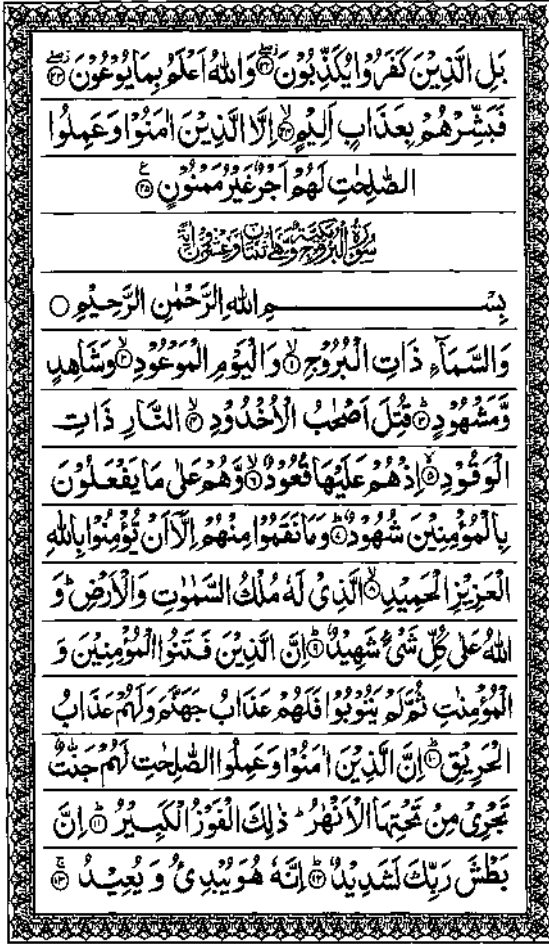 بَلِ الَّذِيْنَ كَفَرُوْا يُكَذِّبُوْنَ ﴿۲۲﴾ وَاللّٰهُ اَعْلَمُ بِمَا يُوْعُوْنَ ﴿۲۳﴾
فَبَشِّرْهُمْ بِعَذَابٍ اَلِيْمٍ ﴿۲۴﴾ اِلَّا الَّذِيْنَ اٰمَنُوْا وَعَمِلُوا
الصّٰلِحٰتِ لَهُمْ اَجْرٌ غَيْرُ مَمْنُوْنٍ ﴿۲۵﴾
سُوْرَةُ الْبُرُوْجِ مَكِّيَّةٌ وَّهِيَ اثْنَتَانِ وَعِشْرُوْنَ اٰيَةً
بِسْمِ اللّٰهِ الرَّحْمٰنِ الرَّحِيْمِ
وَالسَّمَآءِ ذَاتِ الْبُرُوْجِ ﴿۱﴾ وَالْيَوْمِ الْمَوْعُوْدِ ﴿۲﴾ وَشَاهِدٍ
وَّمَشْهُوْدٍ ﴿۳﴾ قُتِلَ اَصْحٰبُ الْاُخْدُوْدِ ﴿۴﴾ النَّارِ ذَاتِ
الْوَقُوْدِ ﴿۵﴾ اِذْ هُمْ عَلَيْهَا قُعُوْدٌ ﴿۶﴾ وَّهُمْ عَلٰى مَا يَفْعَلُوْنَ
بِالْمُؤْمِنِيْنَ شُهُوْدٌ ﴿۷﴾ وَمَا نَقَمُوْا مِنْهُمْ اِلَّآ اَنْ يُّؤْمِنُوْا بِاللّٰهِ
الْعَزِيْزِ الْحَمِيْدِ ﴿۸﴾ الَّذِيْ لَهٗ مُلْكُ السَّمٰوٰتِ وَالْاَرْضِ ؕ وَ
اللّٰهُ عَلٰى كُلِّ شَيْءٍ شَهِيْدٌ ﴿۹﴾ اِنَّ الَّذِيْنَ فَتَنُوا الْمُؤْمِنِيْنَ وَ
الْمُؤْمِنٰتِ ثُمَّ لَمْ يَتُوْبُوْا فَلَهُمْ عَذَابُ جَهَنَّمَ وَلَهُمْ عَذَابُ
الْحَرِيْقِ ﴿۱۰﴾ اِنَّ الَّذِيْنَ اٰمَنُوْا وَعَمِلُوا الصّٰلِحٰتِ لَهُمْ جَنّٰتٌ
تَجْرِيْ مِنْ تَحْتِهَا الْاَنْهٰرُ ؕ ذٰلِكَ الْفَوْزُ الْكَبِيْرُ ﴿۱۱﴾ اِنَّ
بَطْشَ رَبِّكَ لَشَدِيْدٌ ﴿۱۲﴾ اِنَّهٗ هُوَ يُبْدِئُ وَيُعِيْدُ ﴿۱۳﴾